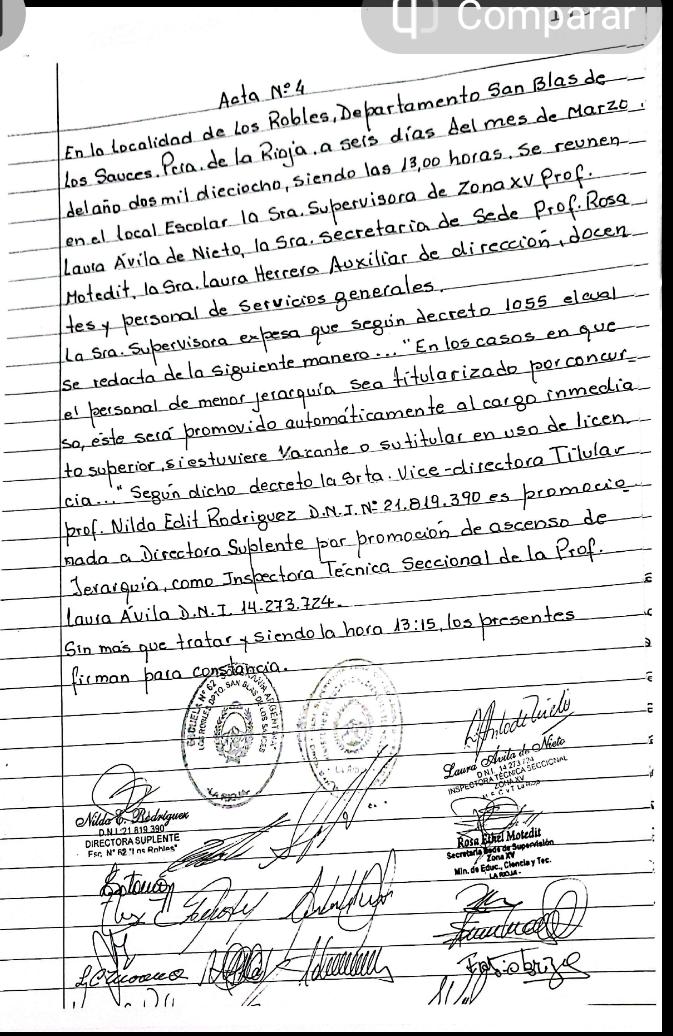 Comparar
Acta Nº 4
En la Localidad de Los Robles, Departamento San Blas de
Los Sauces. Pcia. de La Rioja, a seis días del mes de Marzo
del año dos mil dieciocho, siendo las 13,00 horas, se reunen
en el local Escolar la Sra. Supervisora de Zona XV Prof.
Laura Ávila de Nieto, la Sra. Secretaria de Sede Prof. Rosa
Motedit, la Sra. Laura Herrera Auxiliar de dirección, docen
tes y personal de servicios generales.
La Sra. Supervisora expesa que según decreto 1055 el cual
se redacta de la siguiente manera... "En los casos en que
el personal de menor jerarquía sea titularizado por concur_
so, éste será promovido automáticamente al cargo inmedia
to superior, si estuviere Vacante o sutitular en uso de licen_
cia..." Según dicho decreto la Srta. Vice-directora Titular
prof. Nilda Edit Rodriguez D.N.I. Nº 21.819.390 es promocio_
nada a Directora Suplente por promoción de ascenso de
Jerarquía, como Inspectora Técnica Seccional de la Prof.
Laura Ávila D.N.I. 14.273.724.
Sin más que tratar y siendo la hora 13:15, los presentes
firman para constancia.
ESCUELA Nº 62
LOS ROBLES DPTO. SAN BLAS DE LOS SAUCES
LA RIOJA
Laura Avila de Nieto
D.N.I. 14 273 724
INSPECTORA TÉCNICA SECCIONAL
ZONA XV
Nilda E. Rodriguez
D.N.I. 21 819 390
DIRECTORA SUPLENTE
Esc. Nº 62 "Los Robles"
Rosa Ethel Motedit
Secretaria Sede de Supervisión
Zona XV
Min. de Educ., Ciencia y Tec.
LA RIOJA -